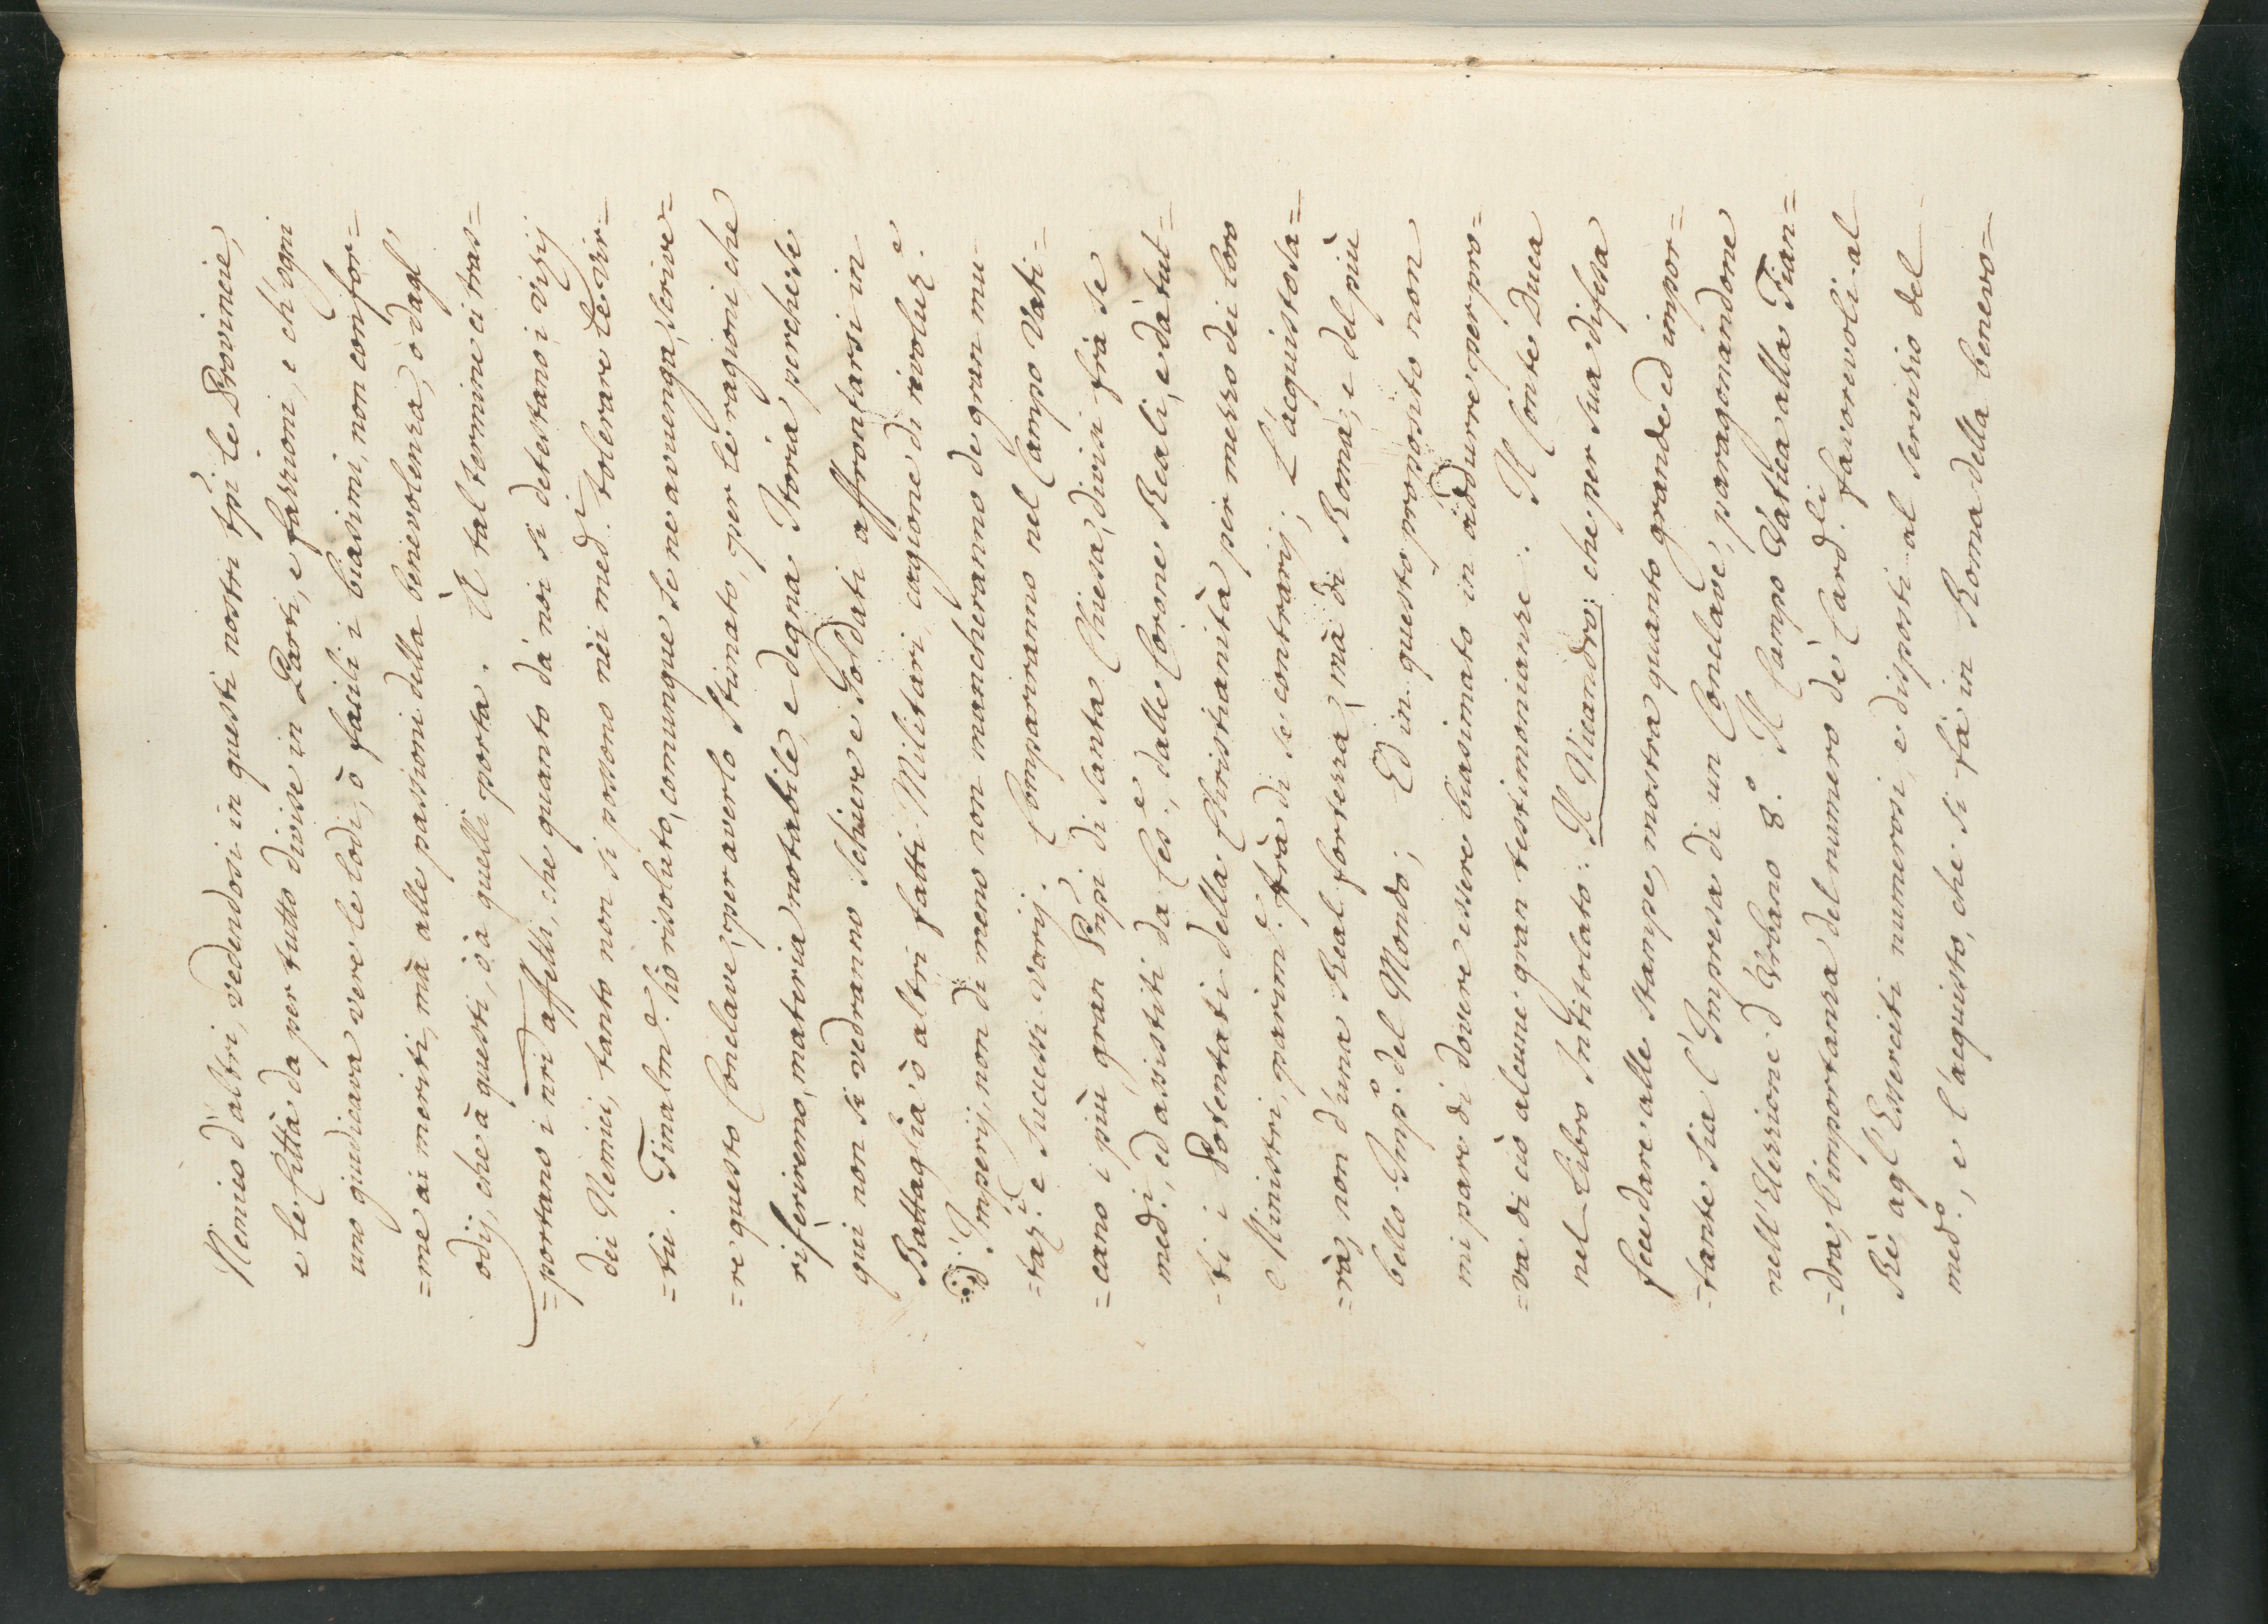 Nemico d'altri, vedendosi in questi nostri tpi le Provincie,
e le Città da per tutto divise in Parti, e fazzioni, e ch'ogni
uno giudicava vere le lodi, ò facili i biasimi, non confor=
=me ai meriti, mà alle passioni della benevolenza, ò dagl'
odij, che à questi, ò à quelli porta. A tal termine ci tras=
=portano i nri affetti, che quanto dà noi si detestano i vizij
dei Nemici, tanto non si possono nèi med.i tolerare le vir=
=tù. Finalm.e hò risoluto, comunque se ne avvenga, scrive=
=re questo Conclave, per averlo stimato, per le ragioni che
riferiremo, materia notabile, e degna Storia, perche se
qui non si vedranno Schiere e Soldati affrontarsi in
Battaglia, ò altri fatti Militari, cagione di rivoluz.e
d'Imperij, non di meno non mancheranno de gran mu=
=taz.i e successi varij. Compariranno nel Campo Vati=
=cano i più gran Pnpi di Santa Chiesa, divisi frà se
med.i, ed assistiti da Ces.e, dalle Corone Reali, e dà tut=
=ti i Potentati della Christianità per mezzo dei loro
Ministri, parim.e frà di se contrarij; L'acquisto sa=
=rà, non d'una Real fortezza, mà di Roma, e del più
bello Imp.o del Mondo; Ed in questo proposito non
mi pare di dovere essere biasimato in addurre per pro=
=va di ciò alcune gran testimonianze. Il Conte Duca
nel Libro Intitolato: Il Nicandro: che per sua difesa
fece dare alle stampe, mostra quanto grande ed impor=
=tante sia l'Impresa di un Conclave, paragonandone
nell'Elezzione d'Urbano 8.o Il Campo Vatica alla Fian=
=dra, l'importanza del numero de' Card.li favorevoli al
Rè, agl'Esserciti numerosi, e disposti al servizio del
med.o, e l'acquisto, che si fà in Roma della benevo=